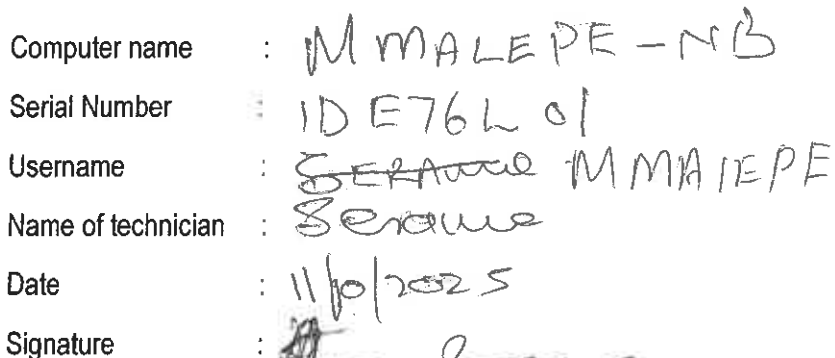 Computer name : MMALEPE-NB
Serial Number : 1DE76L01
Username : MMALEPE
Name of technician : Serame
Date : 11/10/2025
Signature :